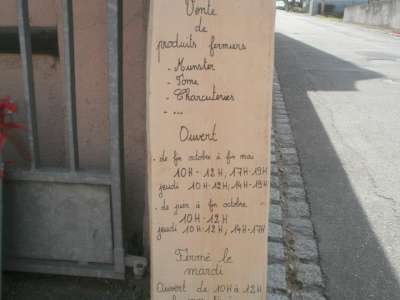 Vente
de
produits fermiers
- Munster
- Tome
- Charcuteries
- ...
Ouvert
- de fin octobre à fin mai
10H-12H, 17H-19H
jeudi 10H-12H, 14H-19H
- de juin à fin octobre
10H-12H
jeudi 10H-12H, 14H-17H
Fermé le
mardi
Ouvert de 10H à 12H